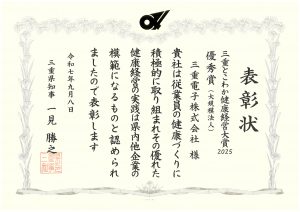 表彰状
三重とこわか健康経営大賞2025
優秀賞(大規模法人)
三重電子株式会社 様
貴社は従業員の健康づくりに
積極的に取り組まれその優れた
健康経営の実践は県内他企業の
模範になるものと認められ
ましたので表彰します
令和七年九月八日
三重県知事 一見勝之